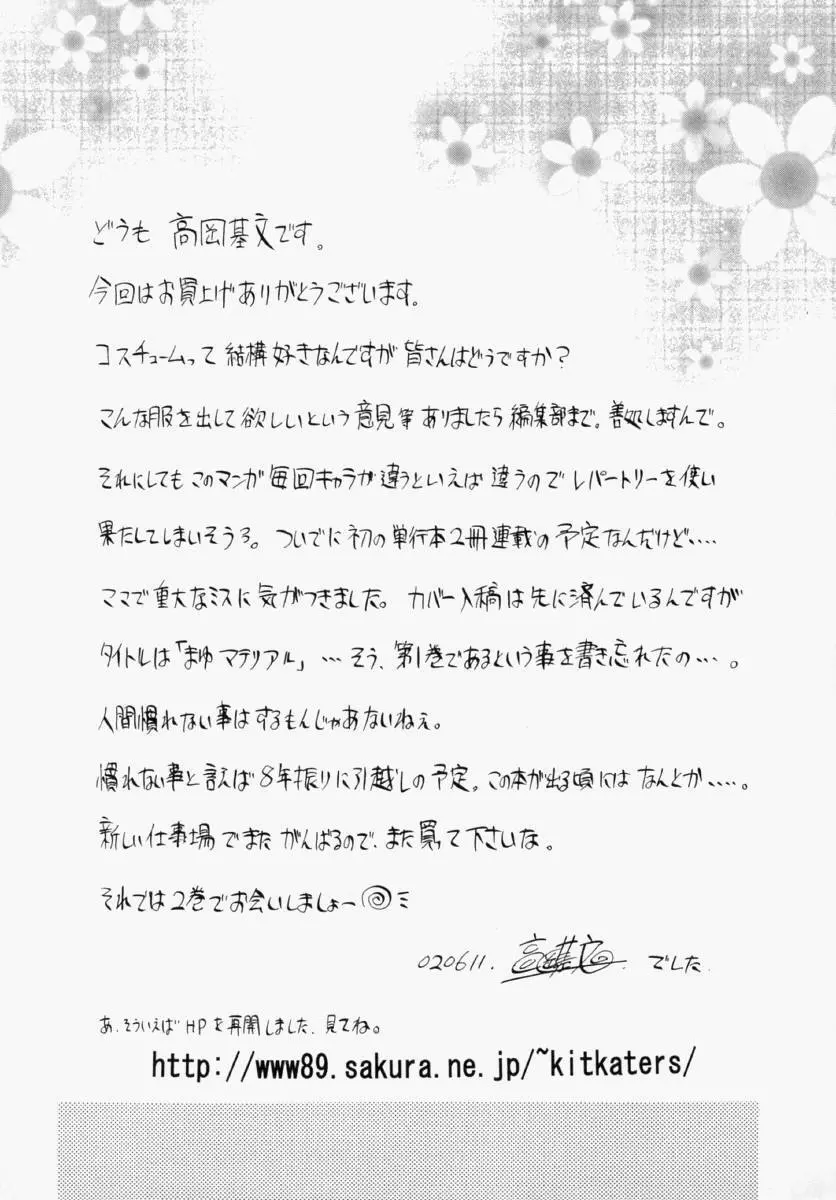 どうも 高岡基文です。
今回はお買上げありがとうございます。
コスチュームって結構好きなんですが 皆さんはどうですか?
こんな服を出して欲しいという意見等ありましたら編集部まで。善処しますんで。
それにしてもこのマンガ毎回キャラが違うといえば違うのでレパートリーを使い
果たしてしまいそうる。ついでに初の単行本2冊連載の予定なんだけど‥‥
ママで重大なミスに気がつきました。カバー入稿は先に済んでいるんですが
タイトルは「まゆマテリアル」…そう、第1巻であるという事を書き忘れたの…。
人間慣れない事はするもんじゃあないねぇ。
慣れない事と言えば8年振りに引越しの予定。この本が出る頃にはなんとか‥‥。
新しい仕事場でまたがんばるので、また買って下さいな。
それでは2巻でお会いしましょー
020611. 高岡基文 でした.
あ、そういえばHPを再開しました、見てね。
http://www89.sakura.ne.jp/~kitkaters/